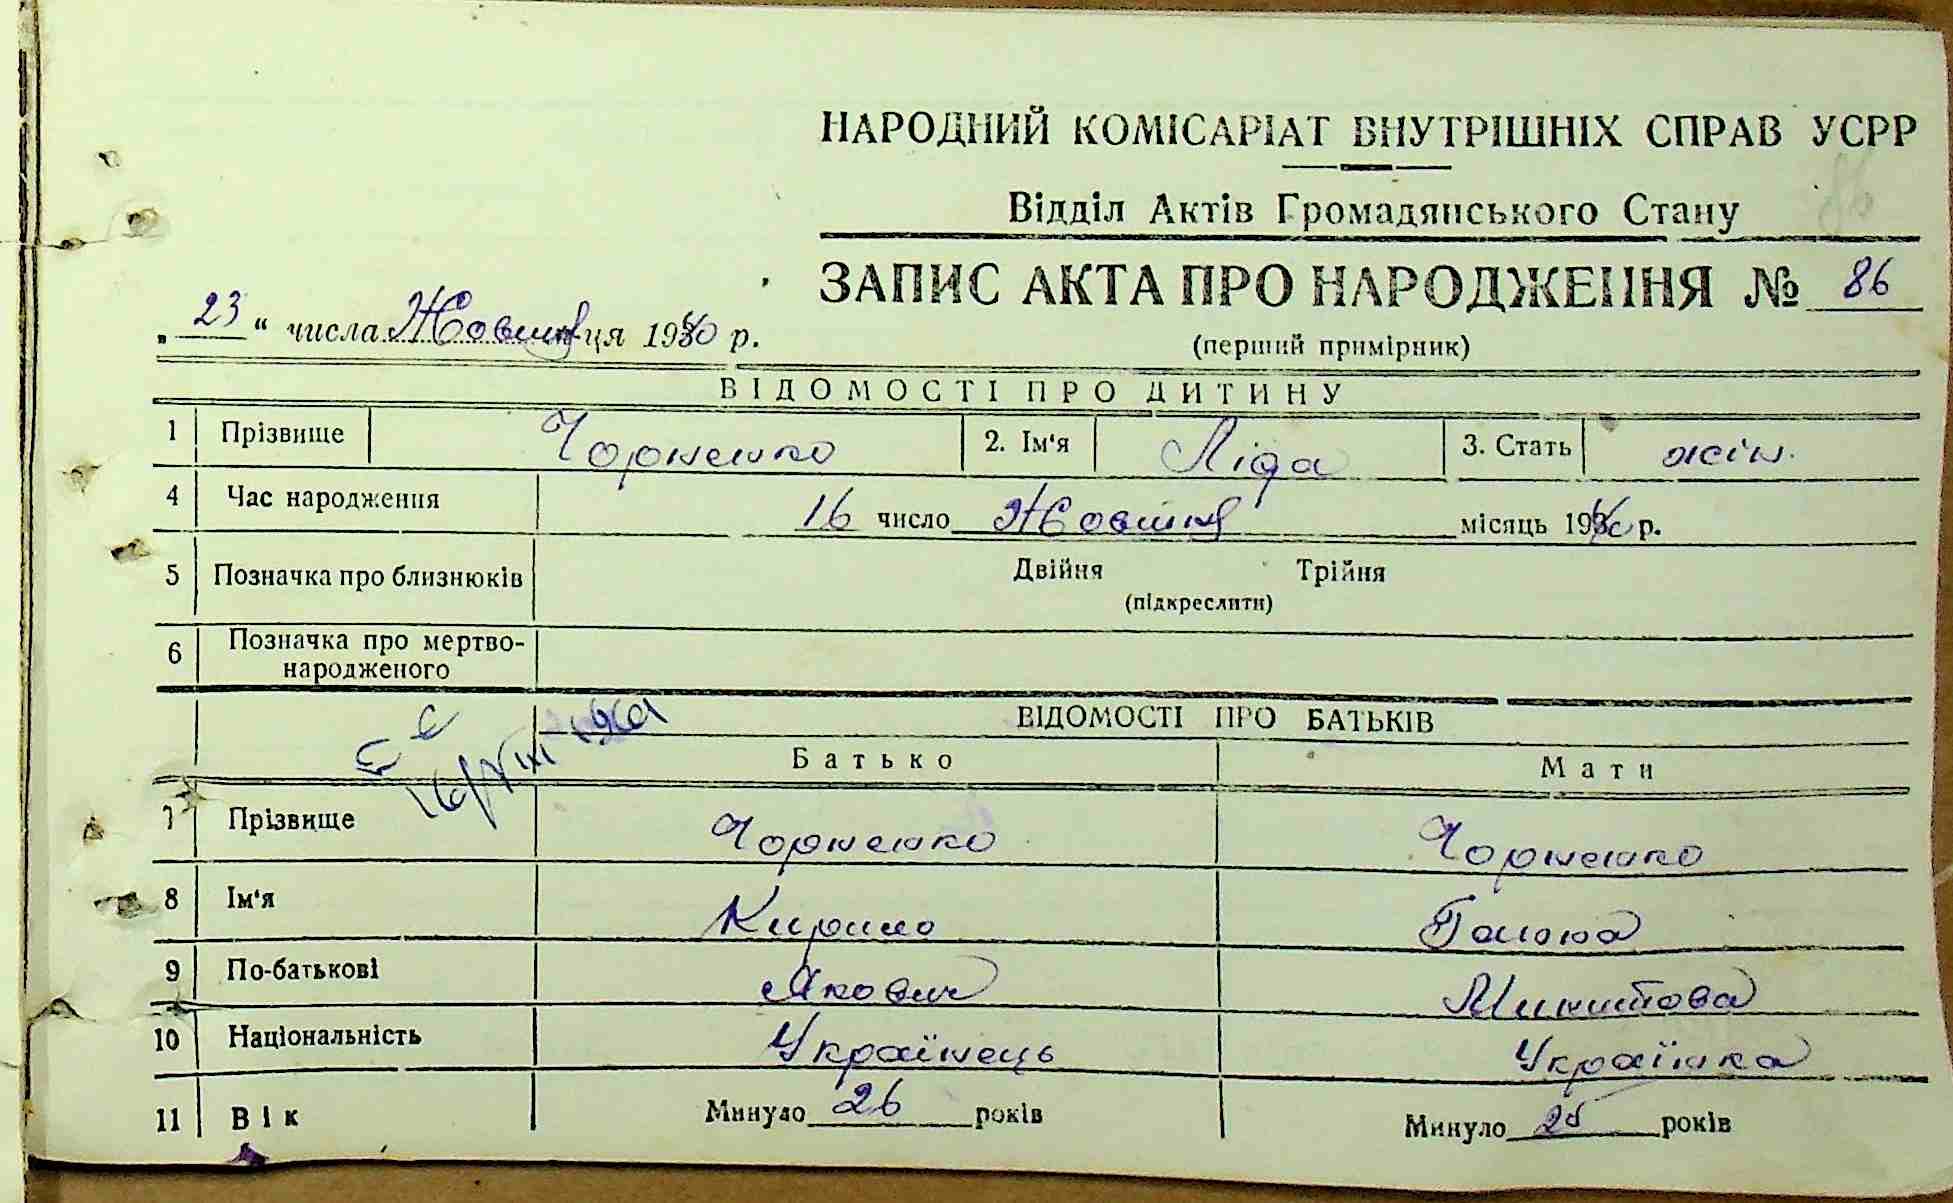 НАРОДНИЙ КОМІСАРІАТ ВНУТРІШНІХ СПРАВ УСРР
Відділ Актів Громадянського Стану
86
ЗАПИС АКТА ПРО НАРОДЖЕННЯ № 86
(перший примірник)
„23“ числа Жовтня ця 1940 р.
ВІДОМОСТІ ПРО ДИТИНУ
1 Прізвище Чорненко 2. Ім'я Ліда 3. Стать жін.
4 Час народження 16 число Жовтня місяць 1940 р.
5 Позначка про близнюків Двійня Трійня
(підкреслити)
6 Позначка про мертво-
народженого
ВІДОМОСТІ ПРО БАТЬКІВ
Батько Мати
7 Прізвище Чорненко Чорненко
8 Ім'я Кирило Ганна
9 По-батькові Якович Микитова
10 Національність Українець Українка
11 Вік Минуло 26 років Минуло 25 років